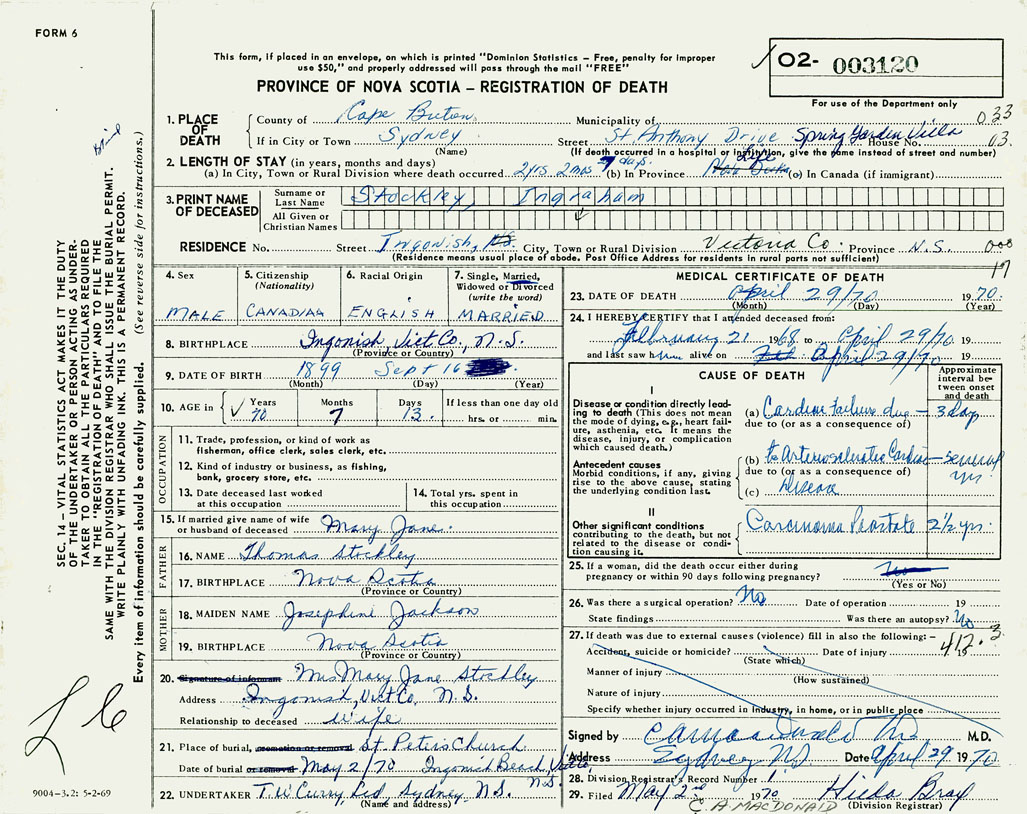 FORM 6
This form, if placed in an envelope, on which is printed "Dominion Statistics – Free, penalty for improper
use $50," and properly addressed will pass through the mail "FREE"
O2- 003120
For use of the Department only
PROVINCE OF NOVA SCOTIA – REGISTRATION OF DEATH
033
1. PLACE OF DEATH { County of Cape Breton Municipality of
If in City or Town Sydney Street St Anthony Drive Spring Garden Villa House No. 03.
(Name) (If death occurred in a hospital or institution, give the name instead of street and number)
2. LENGTH OF STAY (in years, months and days)
(a) In City, Town or Rural Division where death occurred 2 yrs. 2 mos 7 days. (b) In Province Life (c) In Canada (if immigrant)
3. PRINT NAME OF DECEASED
Surname or Last Name Stockley, Ingraham
All Given or Christian Names
RESIDENCE No. Street Ingonish, N.S. City, Town or Rural Division Victoria Co. Province N.S. 008
(Residence means usual place of abode. Post Office Address for residents in rural parts not sufficient)
17
4. Sex
MALE
5. Citizenship (Nationality)
CANADIAN
6. Racial Origin
ENGLISH
7. Single, Married, Widowed or Divorced (write the word)
MARRIED
8. BIRTHPLACE Ingonish, Vict Co., N.S.
(Province or Country)
9. DATE OF BIRTH 1899 Sept 16
(Month) (Day) (Year)
10. AGE in { ✓ Years 70 Months 7 Days 13. If less than one day old
hrs. or min.
OCCUPATION
11. Trade, profession, or kind of work as
fisherman, office clerk, sales clerk, etc.
12. Kind of industry or business, as fishing,
bank, grocery store, etc.
13. Date deceased last worked
at this occupation
14. Total yrs. spent in
this occupation
15. If married give name of wife
or husband of deceased Mary Jane.
FATHER
16. NAME Thomas Stockley
17. BIRTHPLACE Nova Scotia
(Province or Country)
MOTHER
18. MAIDEN NAME Josephine Jackson
19. BIRTHPLACE Nova Scotia
(Province or Country)
20. Signature of informant Mrs Mary Jane Stockley
Address Ingonish, Vict Co, N.S.
Relationship to deceased wife
21. Place of burial, cremation or removal St. Peters Church
Date of burial or removal May 2/70 Ingonish Beach, Victo, N.S.
22. UNDERTAKER T.W. Curry, Ltd, Sydney, N.S.
(Name and address)
MEDICAL CERTIFICATE OF DEATH
23. DATE OF DEATH April 29/70 1970.
(Month) (Day) (Year)
24. I HEREBY CERTIFY that I attended deceased from:
February 21 1968 to April 29/70
and last saw him alive on April 29/70 19
CAUSE OF DEATH
Approximate interval between onset and death
I
Disease or condition directly leading to death (This does not
mean the mode of dying, e.g., heart failure, asthenia, etc. It means the
disease, injury, or complication
which caused death.)
(a) Cardiac failure due – 3 day
due to (or as a consequence of)
Antecedent causes
Morbid conditions, if any, giving
rise to the above cause, stating
the underlying condition last.
(b) to Arteriosclerotic Cardiac – several yrs.
due to (or as a consequence of)
(c) Disease
II
Other significant conditions
contributing to the death, but not
related to the disease or condition causing it.
Carcinoma Prostate 2½ yrs.
25. If a woman, did the death occur either during
pregnancy or within 90 days following pregnancy?
(Yes or No)
26. Was there a surgical operation? No Date of operation 19
State findings Was there an autopsy? No
27. If death was due to external causes (violence) fill in also the following: – 412.3
Accident, suicide or homicide? Date of injury 19
(State which)
Manner of injury
(How sustained)
Nature of injury
Specify whether injury occurred in industry, in home, or in public place
Signed by M.D.
Address Sydney NS Date April 29 1970
28. Division Registrar's Record Number 1.
29. Filed May 2nd 1970 Hilda Bray
C. A. MACDONALD (Division Registrar)
SEC. 14 – VITAL STATISTICS ACT MAKES IT THE DUTY
OF THE UNDERTAKER OR PERSON ACTING AS UNDERTAKER
TO OBTAIN ALL THE PARTICULARS REQUIRED
IN THE "REGISTRATION OF DEATH" AND TO FILE THE
SAME WITH THE DIVISION REGISTRAR WHO SHALL ISSUE THE BURIAL PERMIT.
WRITE PLAINLY WITH UNFADING INK. THIS IS A PERMANENT RECORD.
Every item of information should be carefully supplied. (See reverse side for instructions.)
9004-3.2: 5-2-69